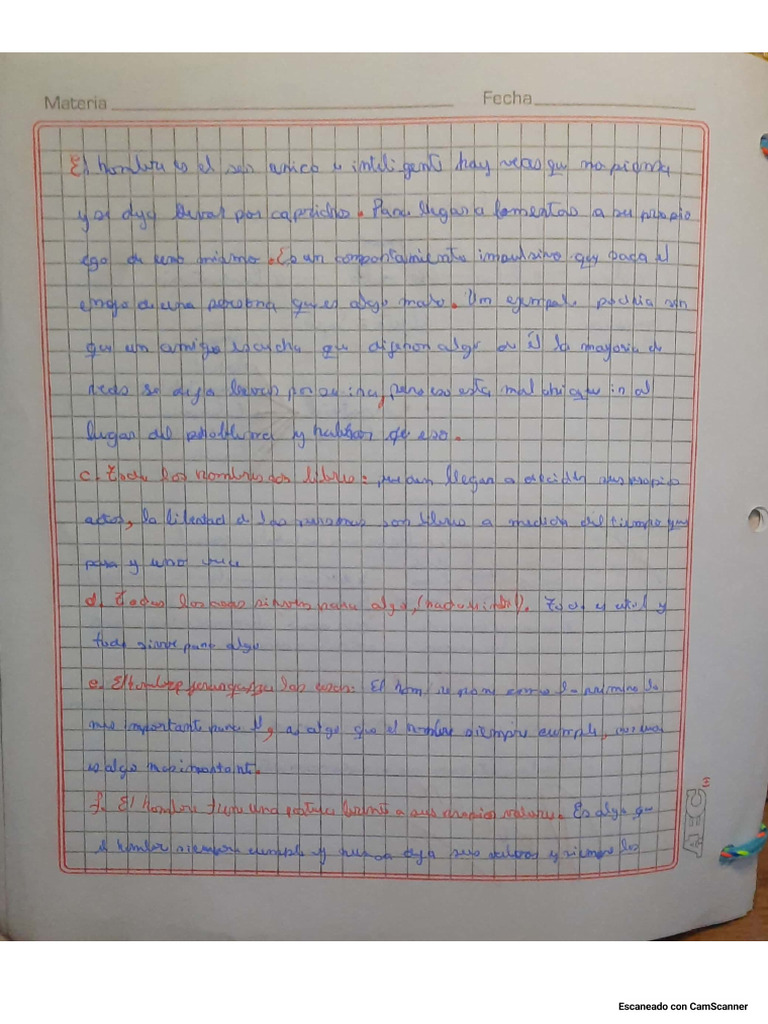 Materia Fecha
El hombre es el ser unico e inteligente hay veces que no piensa
y se deja llevar por capricho. Para llegar a lamentar a su propio
ego de uno mismo. Es un comportamiento impulsivo que saca el
enojo de una persona que es algo malo. Un ejemplo podria ser
que un amigo escucha que dijeron algo de él la mayoria de
veces se deja llevar por su ira, pero eso esta mal
lugar del problema y hablar de eso.
c. Todos los hombres son libres: pueden llegar a decidir sus propios
actos, la libertad de las personas son libres a medida del tiempo que
pasa y uno
d. Todas las cosas sirven para algo, Todo es util y
todo sirve para algo
e. El hombre jerarquiza las cosas: El hombre pone como lo primero lo
mas importante para él, es algo que el hombre siempre cumple,
es algo
f. El hombre tiene una postura frente a sus propios valores. Es algo que
el hombre siempre cumple y nunca deja sus valores y siempre los
Escaneado con CamScanner